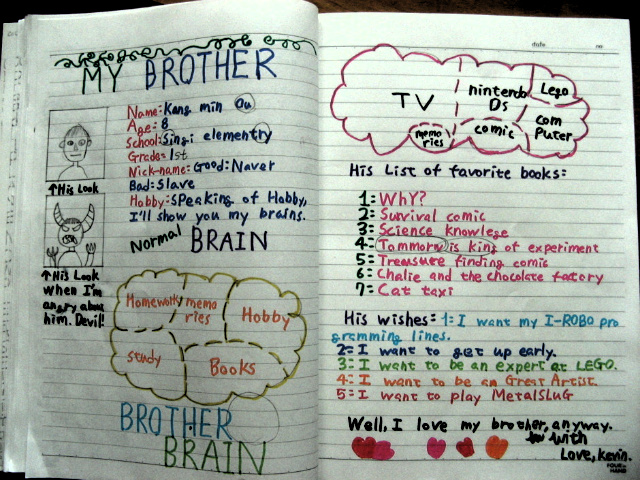 MY BROTHER
Name: Kang min Gu
Age: 8
School: Singi elementry
Grade: 1st
Nick-name: Good: Naver
Bad: Slave
Hobby: Speaking of Hobby,
I'll show you my brains.
↑His Look
↑His Look
when I'm
angry about
him. Devil!
Normal BRAIN
Homework
memo
ries
Hobby
study
Books
BROTHER
BRAIN
date no
TV
nintendo
Ds
Lego
memo
ries
comic
com
Puter
His List of favorite books:
1: WhY?
2: Survival comic
3: Science knowlege
4: Tommorw is king of experiment
5: Treasure finding comic
6: Chalie and the chocolate factory
7: Cat taxi
His wishes: 1: I want my I-ROBO pro
gramming lines.
2: I want to get up early.
3: I want to be an expert at LEGO.
4: I want to be an Great Artist.
5: I want to play MetalSluG
Well, I love my brother, anyway.
with
Love, Kevin.